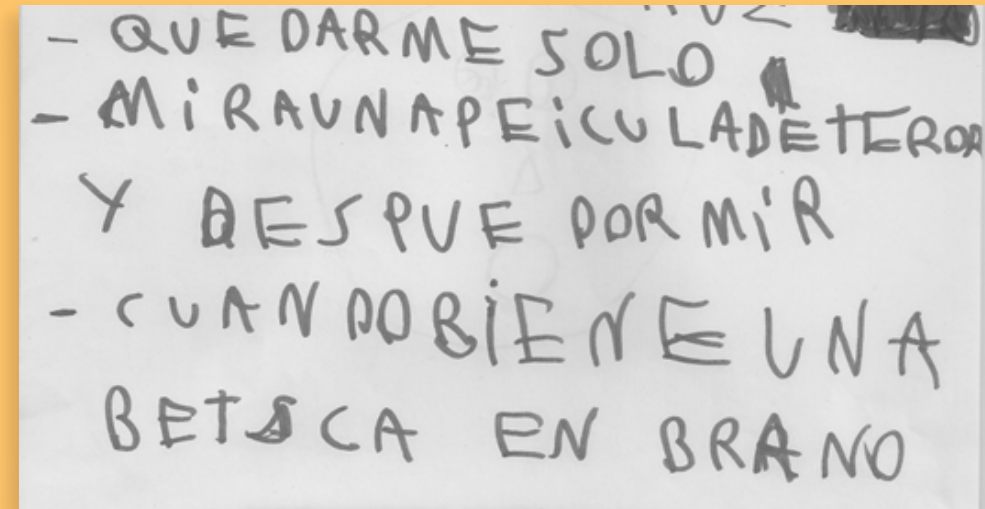 - QUEDARME SOLO
- MiRAUNAPEiCULADETEROR
Y DESPUE DORMiR
- CUANDOBiENEUNA
BETSCA EN BRANO